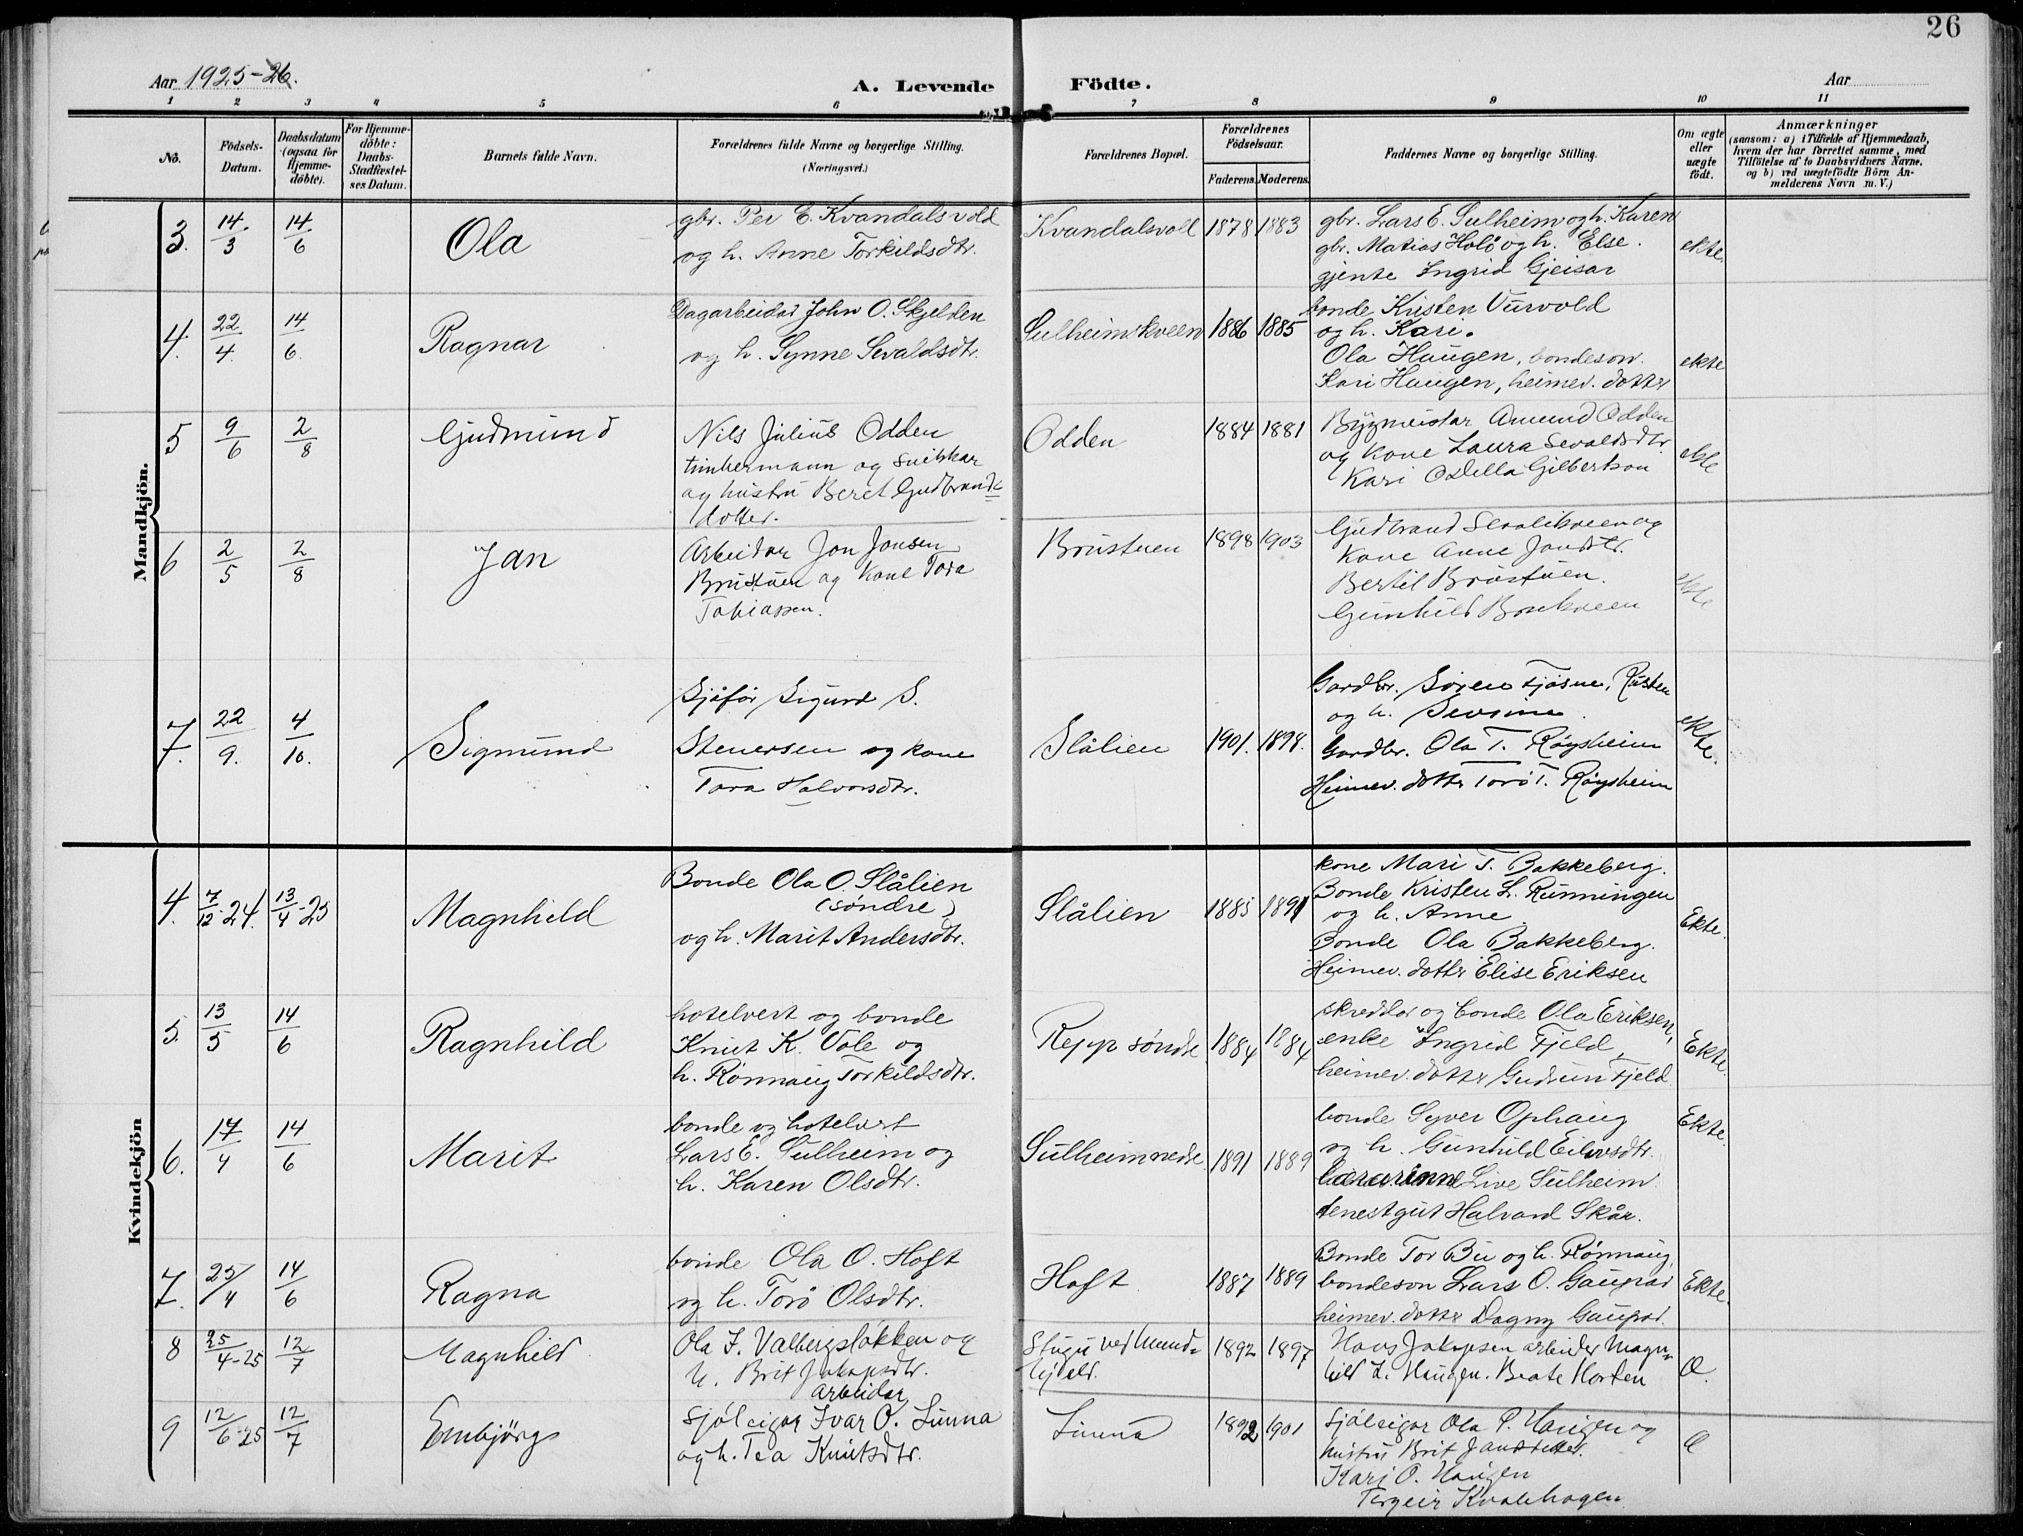 26
Aar 1925-26.
A. Levende Födte.
Aar
1 2 3 4 5 6 7 8 9 10 11
No.
Födsels-
Datum.
Daabsdatum
(ogsaa for
Hjemme-
döbte).
For Hjemme-
döbte:
Daabs-
Stadfæstel-
ses Datum.
Barnets fulde Navn.
Forældrenes fulde Navne og borgerlige Stilling.
(Næringsvei.)
Forældrenes Bopæl.
Forældrenes
Födselsaar.
Faderens. Moderens.
Faddernes Navne og borgerlige Stilling.
Om ægte
eller
uægte
födt.
Anmærkninger
(saasom: a) i Tilfælde af Hjemmedaab,
hvem der har forrettet samme, med
Tilföielse af to Daabsvidners Navne.
og b) ved uægtefödte Börn An-
melderens Navn m. V.)
Mandkjön.
3. 14/3 14/6 Ola
gbr. Per E. Kvandalsvold
og h. Anne Torkildsdtr.
Kvandalsvoll 1878 1883
gbr. Lars E. Sulheim og h. Karen
gbr. Matias Holö og h. Else.
gjente Ingrid Gjeisar
ekte.
4. 22/4. 14/6. Ragnar
Dagarbeidar John O. Skjelden
og h. Synne Sevaldsdtr.
Sulheimskveen 1886 1885
bonde Kristen Vurvold
og h. Kari.
Ola Haugen, bondeson.
Kari Haugen, heimev. dotter
ekte
5 9/6 2/8 Gudmund
Nils Julius Odden
timbermann og snikkar
og hustru Beret Gudbrands
dotter.
Odden 1884 1881
Byggmeistar Amund Odden
og kone Laura Sevaldsdtr.
Kari Odella Gilbertson
ekte
6 2/5 2/8 Jan
Arbeidar Jon Jansen
Brustuen og kone Tora
Tobiassen.
Brustuen 1898 1903
Gudbrand
kone Anne Jonsdtr.
Bertil Brustuen.
Gunhild
ekte
7. 22/9. 4/10. Sigmund
Sjåför Sigurd S.
Stenersen og kone
Tora Halvorsdtr.
Slålien 1901. 1898.
Gardbr. Sören Fjösne, Rusten
og h.
Gardbr. Ola T. Röysheim
Heimev. dotter Torö T. Röysheim
ekte.
Kvindekjön
4. 7/12-24. 13/4-25 Magnhild
Bonde Ola O. Slålien
(söndre)
og h. Marit Andersdtr.
Slålien 1885 1891
kone Mari T. Bakkeberg.
Bonde Kristen L. Runningen
og h. Anne.
Bonde Ola Bakkeberg.
Heimev. dotter Elise Eriksen
Ekte.
5. 13/5 14/6 Ragnhild
hotelvert og bonde
Knut K. Vole og
h. Rönnaug Torkildsdtr.
Repp söndre 1884 1884
skreddar og bonde Ola Eriksen,
enke Ingrid Fjeld,
heimev. dotter Gudrun Fjeld
Ekte.
6. 17/4 14/6 Marit
bonde og hotelvert
Lars E. Sulheim og
h. Karen Olsdtr.
Sulheim nedre 1891 1889
bonde Syver Ophaug
og h. Gunhild Eilevsdtr.
lærarinne Live Sulheim
tenestgut Halvard Skår.
Ekte.
7. 25/4 14/6 Ragna
bonde Ola O. Hoft
og h. Torö Olsdtr.
Hoft 1887 1889
Bonde Tor Bu og h. Rönnaug,
bondeson Lars O. Gaupar
heimev. dotter Dagny Gaupar.
Ekte.
8 25/4-25 12/7 Magnhild
Ola J. Valbergsløkken og
h. Brit Jakopsdtr.
Stugu ved
1892 1897
Hans Jakopsen arbeider Magn-
hild L. Haugen. Beate Horten
9 12/6-25 12/7 Embjörg
arbeidar
Sjöleigar Ivar O. Linna
og h. Tea Knutsdtr.
Linna 1892 1901
Sjöleigar Ola P. Haugen og
hustru Brit Jansdotter.
Kari O. Haugen
Torgeir Kvalehagen